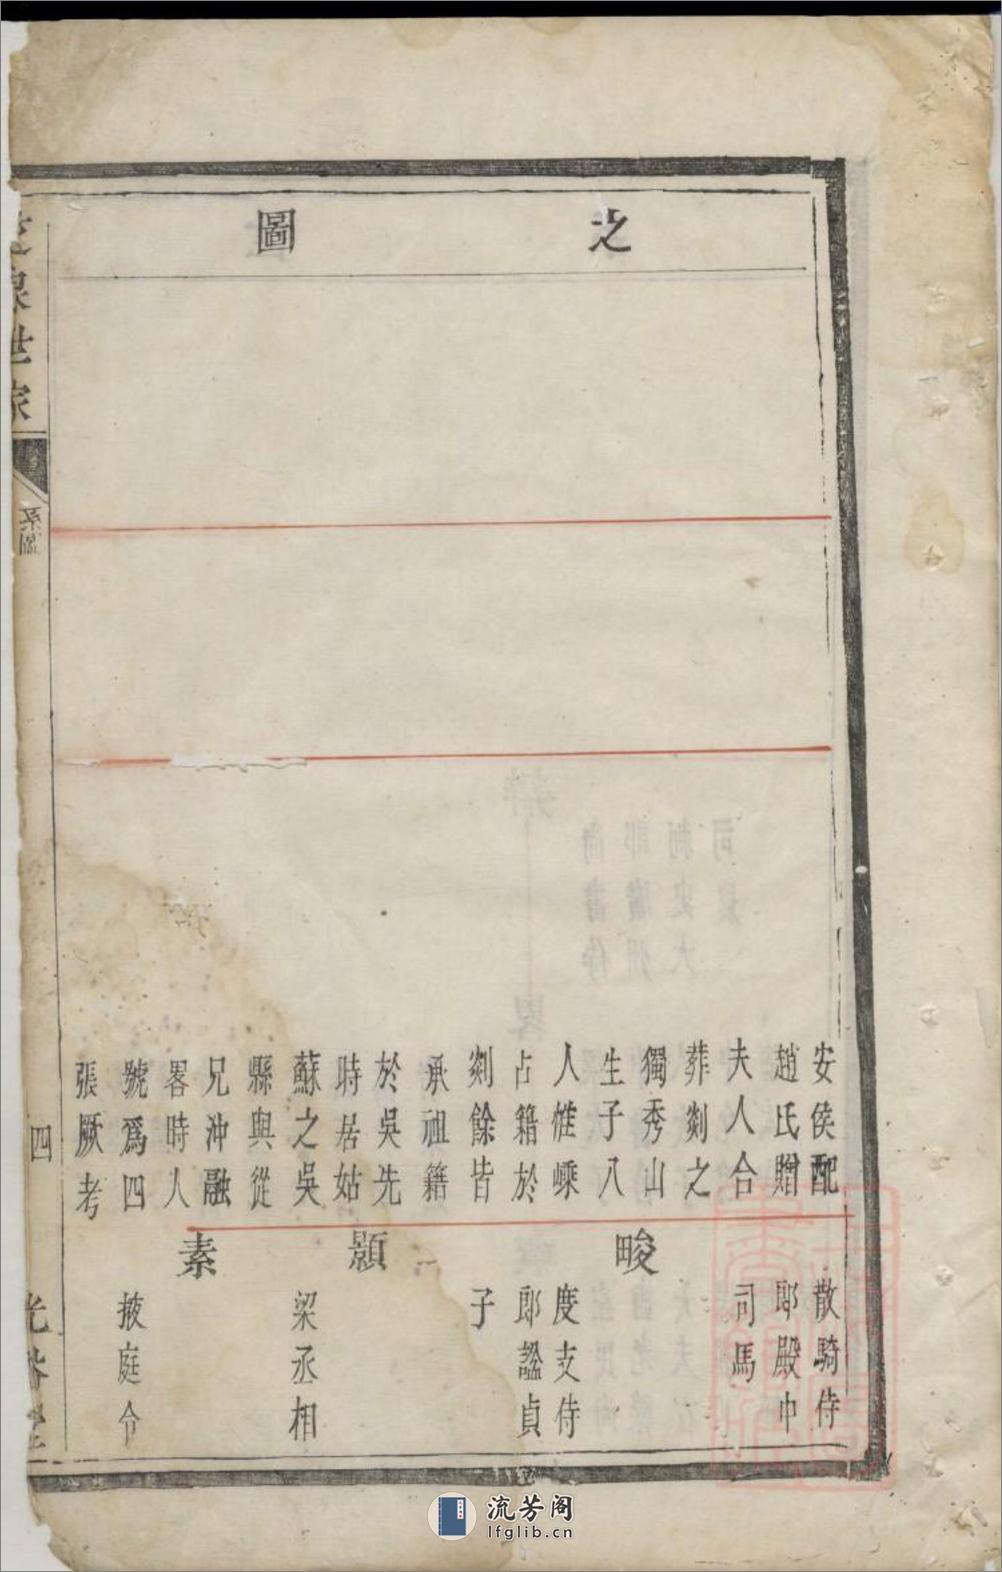 之
圖
安侯配
趙氏贈
夫人合
葬剡之
獨秀山
生子八
人惟嵊
占籍於
剡餘皆
承祖籍
於吳先
時居姑
蘇之吳
縣與從
兄沖融
畧時人
號爲四
張厥考
散騎侍
郎殿中
司馬
畯
度支侍
郎諡貞
子
顯
梁丞相
素
掖庭令
世家
系圖
四
流芳阁
lfglib.cn